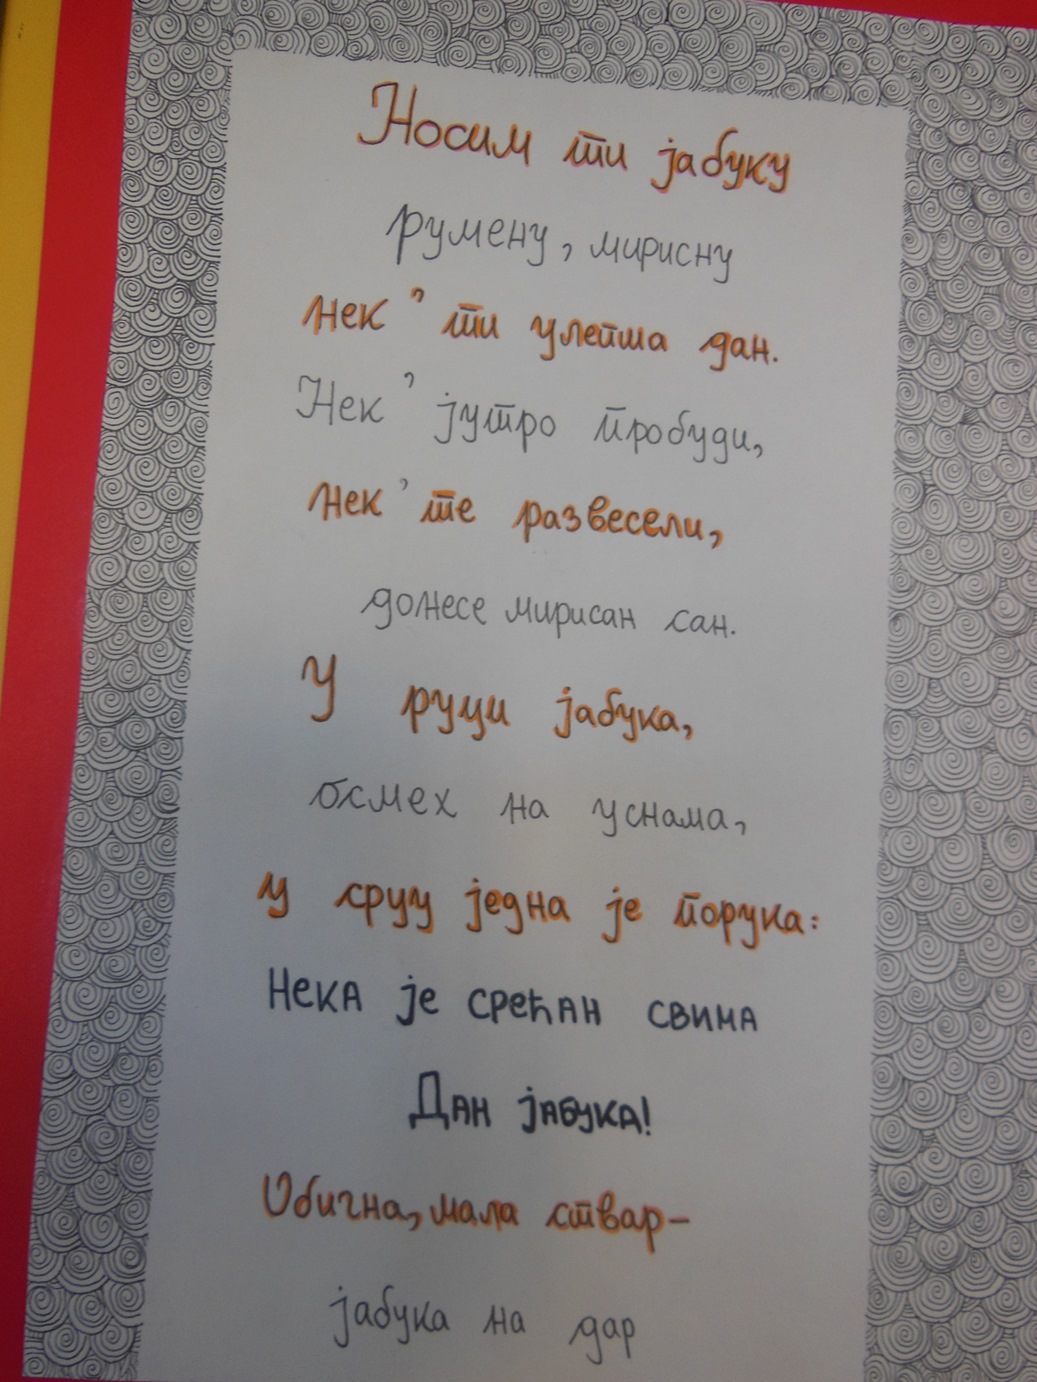 Носим ти јабуку
румену, мирисну
нек' ти улепша дан.
Нек' јутро пробуди,
нек' те развесели,
донесе мирисан сан.
У руци јабука,
осмех на уснама,
у срцу једна је порука:
НЕКА ЈЕ СРЕЋАН СВИМА
ДАН ЈАБУКА!
Обична, мала ствар-
јабука на дар